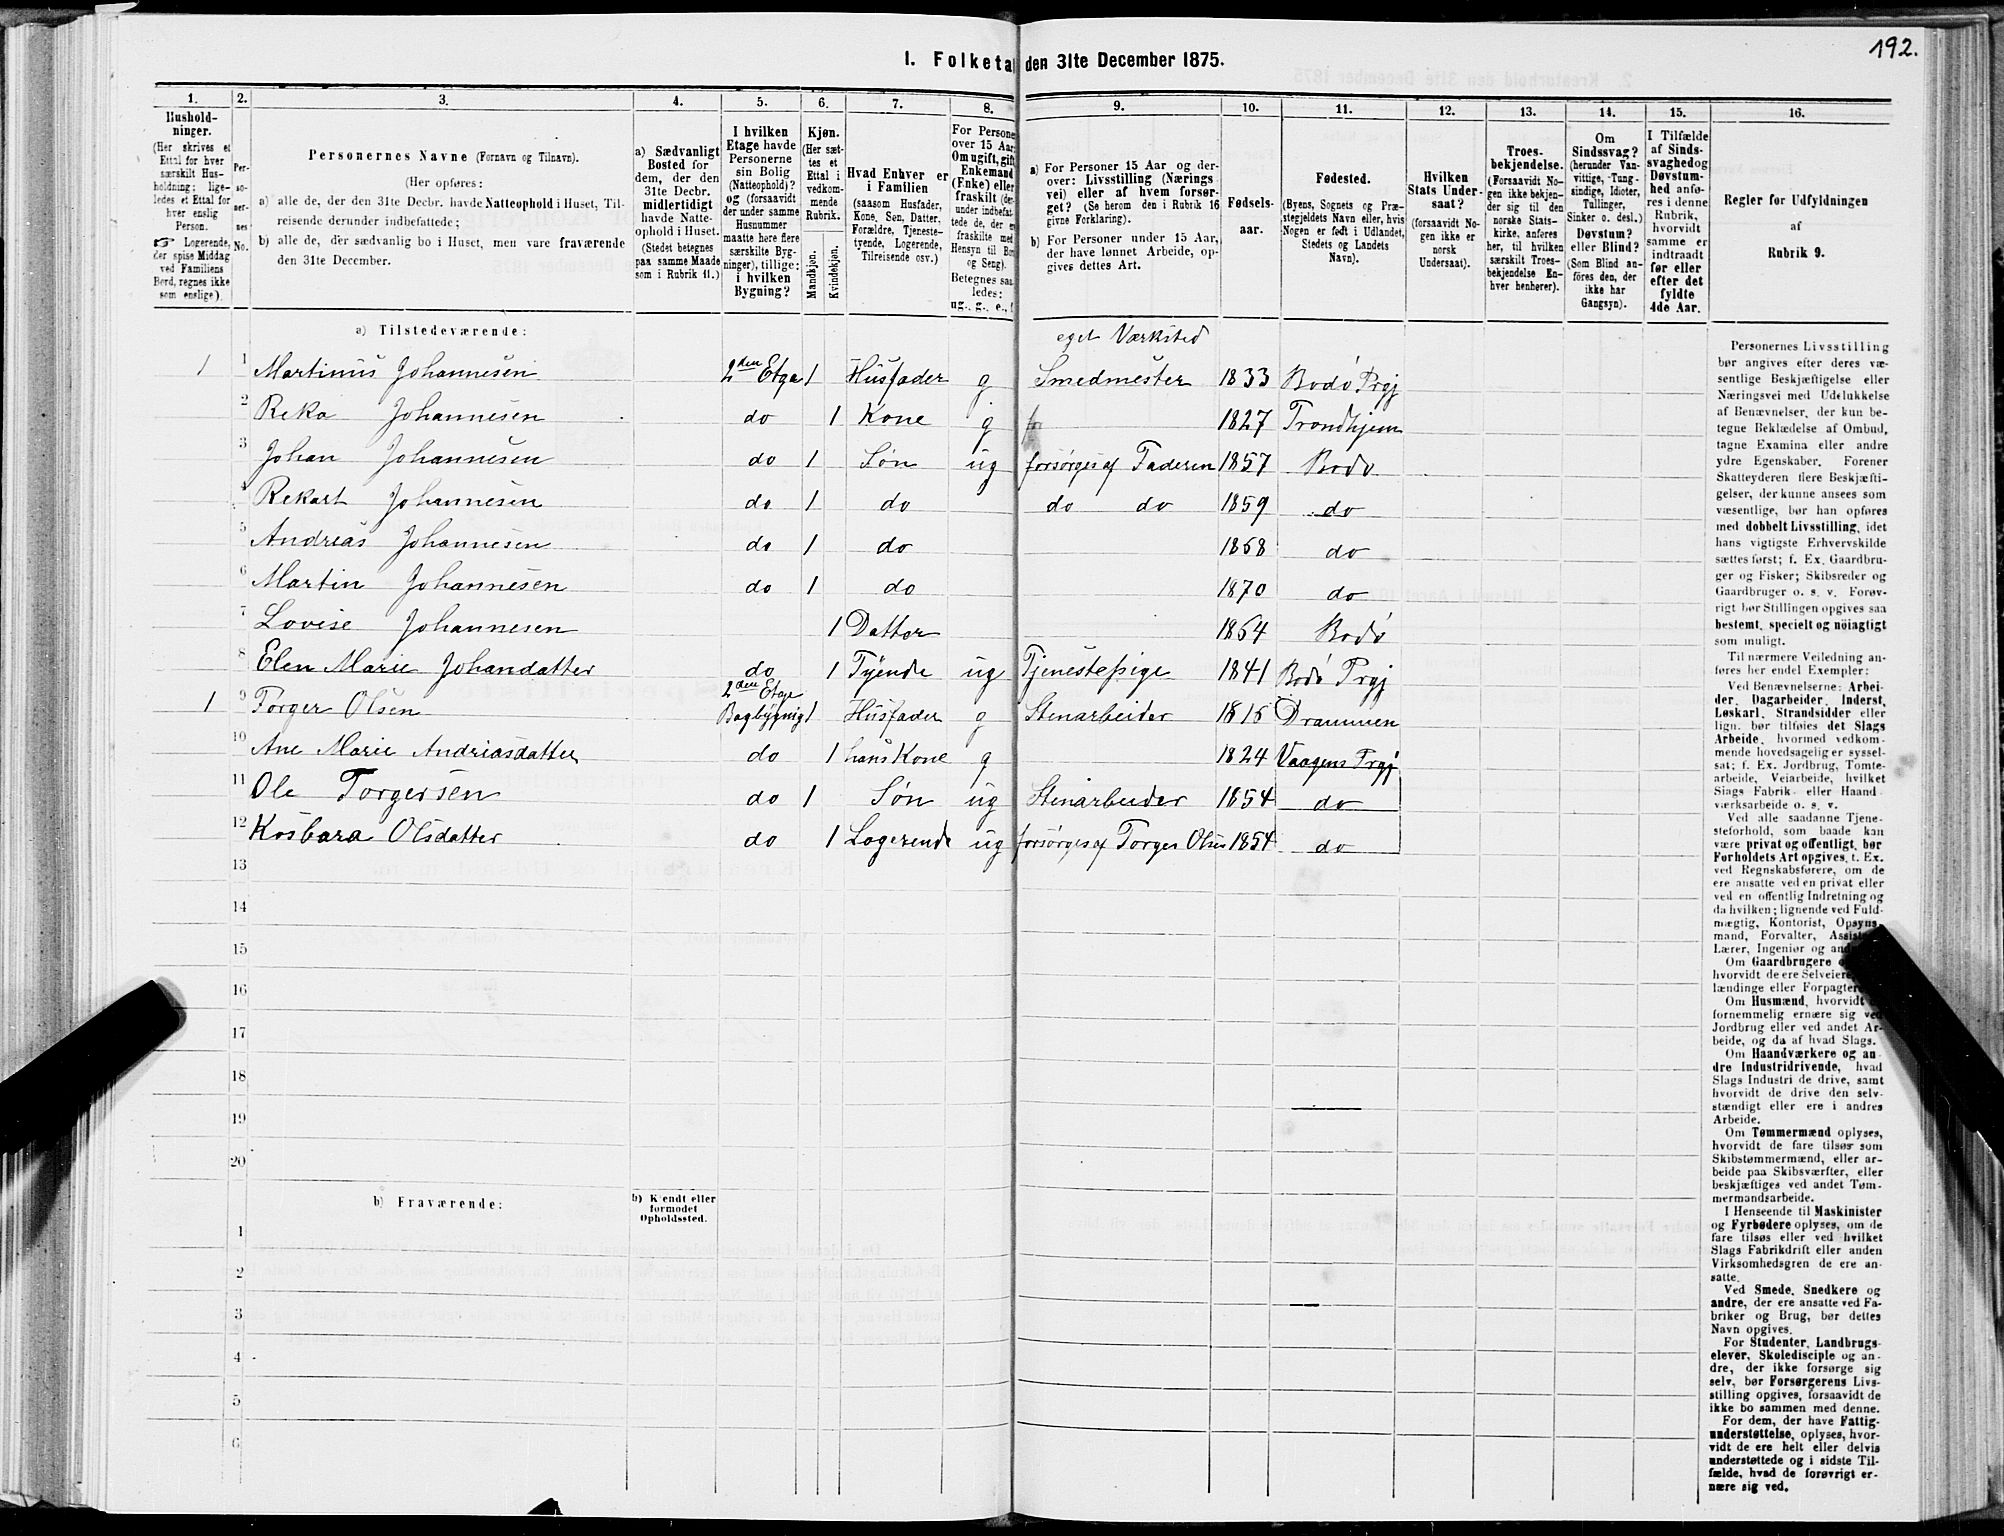 192.
I. Folketa den 31te December 1875.
1. 2. 3. 4. 5. 6. 7. 8. 9. 10. 11. 12. 13. 14. 15. 16.
Hushold-
ninger.
(Her skrives et
Ettal for hver
særskilt Hus-
holdning; lige-
ledes et Ettal for
hver enslig
Person.
☞ Logerende,
der spise Middag
ved Familiens
Bord, regnes ikke
som enslige).
Per-
so-
ner-
nes
No.
Personernes Navne (Fornavn og Tilnavn).
(Her opføres:
a) alle de, der den 31te Decbr. havde Natteophold i Huset, Til-
reisende derunder indbefattede;
b) alle de, der sædvanlig bo i Huset, men vare fraværende
den 31te December.
a) Sædvanligt
Bosted for
dem, der den
31te Decbr.
midlertidigt
havde Natte-
ophold i Huset.
(Stedet betegnes
paa samme Maade
som i Rubrik 11.)
I hvilken
Etage havde
Personerne
sin Bolig
(Natteophold)?
og (forsaavidt
der under samme
Husnummer
maatte høre flere
særskilte Byg-
ninger), tillige:
i hvilken
Bygning?
Kjøn.
(Her sæt-
tes et
Ettal i
vedkom-
mende
Rubrik.
Mandkjøn.
Kvindekjøn.
Hvad Enhver er
i Familien
(saasom Husfader,
Kone, Søn, Datter,
Forældre, Tjeneste-
tyende, Logerende,
Tilreisende osv.)
For Persone
over 15 Aar:
Om ugift, gift
Enkemand
(Enke) eller
fraskilt (der-
under indbefat-
tede de, der e
fraskilte med
Hensyn til Bo
og Seng).
Betegnes saa
ledes:
ug., g., e., f
a) For Personer 15 Aar og der-
over: Livsstilling (Nærings
vei) eller af hvem forsør-
get? (Se herom den i Rubrik 16
givne Forklaring).
b) For Personer under 15 Aar,
der have lønnet Arbeide, op-
gives dettes Art.
Fødsels-
aar.
Fødested.
(Byens, Sognets og Præ-
stegjeldets Navn eller, hvis
Nogen er født i Udlandet,
Stedets og Landets
Navn).
Hvilken
Stats Under-
saat?
(forsaavidt No-
gen ikke er
norsk
Undersaat).
Troes-
bekjendelse.
(Forsaavidt No-
gen ikke bekjen-
der sig til den
norske Stats-
kirke, anføres
her, til hvilken
særskilt Troes-
bekjendelse En-
hver henhører).
Om
Sindssvag?
(herunder Van-
vittige, Tung-
sindige, Idioter,
Tullinger,
Sinker o. desl.)
Døvstum?
eller Blind?
(Som Blind an-
føres den, der
ikke har
Gangsyn).
I Tilfælde
af Sinds-
svaghed og
Døvstum-
hed anfø-
res i denne
Rubrik,
hvorvidt
samme er
indtraadt
før eller
efter det
fyldte
4de Aar.
Regler for Udfyldningen
af
Rubrik 9.
a) Tilstedeværende:
eget Værksted
1 1 Martinus Johannesen 2den Etga 1 Husfader g Smedmester 1833 Bodø Prgj
2 Reka Johannesen do 1 Kone g 1827 Trondhjem
3 Johan Johannesen do 1 Søn ug forsørges af Faderen 1857 Bodø
4 Rekart Johannesen do 1 do do do 1859 do
5 Andreas Johannesen do 1 do 1868 do
6 Martin Johannesen do 1 do 1870 do
7 Lovise Johannesen 1 Datter 1864 Bodø
8 Elen Marie Johandatter do 1 Tyende ug Tjenestepige 1841 Bodø Prgj
1 9 Torger Olsen 2den Etage Bagbygnig 1 Husfader g Stenarbeider 1815 Drammen
10 Ane Marie Andriasdatter do 1 hans Kone g 1824 Vaagens Prgj
11 Ole Torgersen do 1 Søn ug Stenarbeider 1854 do
12 Kosbara Olsdatter do 1 Logerende ug forsørges af Torger Olsen 1854 do
13
14
15
16
17
18
19
20
b) Fraværende:
b) Kjendt eller
formodet
Opholdssted.
1
2
3
4
5
6
Personernes Livsstilling
bør angives efter deres væ-
sentlige Beskjæftigelse eller
Næringsvei med Udelukkelse
af Benævnelser, der kun be-
tegne Beklædelse af Ombud,
tagne Examina eller andre
ydre Egenskaber. Forener
Skatteyderen flere Beskjæfti-
gelser, der kunne ansees som
væsentlige, bør han opføres
med dobbelt Livsstilling, idet
hans vigtigste Erhvervskilde
sættes først; f. Ex. Gaardbru-
ger og Fisker; Skibsreder og
Gaardbruger o. s. v. Forøv-
rigt bør Stillingen opgives saa
bestemt, specielt og nöiagtigt
som muligt.
Til nærmere Veiledning an-
føres her endel Exempler:
Ved Benævnelserne: Arbei-
der, Dagarbeider, Inderst,
Løskarl, Strandsidder eller
lign. bør tilføies det Slags
Arbeide, hvormed vedkom-
mende hovedsagelig er syssel-
sat; f. Ex. Jordbrug, Tomte-
arbeide, Veiarbeide, hvilket
Slags Fabrik- eller Haand
værksarbeide o. s. v.
Ved alle saadanne Tjene-
steforhold, som baade kan
være privat og offentligt, bør
Forholdets Art opgives, t. Ex.
ved Regnskabsførere, om de
ere ansatte ved en privat eller
ved en offentlig Indretning og
da hvilken; lignende ved Fuld-
mægtig, Kontorist, Opsyns-
mand, Forvalter,
Lærer, Ingeniør og
Om Gaardbrugere
hvorvidt de ere Selveiere,
lændinge eller Forpagtere
Om Husmænd, hvorvidt
fornemmelig ernære sig ved
Jordbrug eller ved andet Ar-
beide, og da af hvad Slags.
Om Haandværkere og an-
dre Industridrivende, hvad
Slags Industri de drive, samt
hvorvidt de drive den selv-
stændigt eller ere i andres
Arbeide.
Om Tømmermænd oplyses,
hvorvidt de fare tilsøs som
Skibstømmermænd, eller ar-
beide paa Skibsværfter, eller
beskjæftiges ved andet Tøm-
mermandsarbeide.
I Henseende til Maskinister
og Fyrbødere oplyses, om de
fare tilsøs eller ved hvilket
Slags Fabrikdrift eller anden
Virksomhedsgren de ere an-
satte.
Ved Smede, Snedkere og
andre, der ere ansatte ved Fa-
briker og Brug, bør dettes
Navn opgives.
For Studenter, Landbrugs-
elever, Skoledisciple og an-
dre, der ikke forsørge sig
selv, bør Forsørgerens Livs-
stilling opgives, forsaavidt de
ikke bo sammen med denne.
For dem, der have Fattig-
understøttelse, oplyses, hvor-
vidt de ere helt eller delvis
understøttede og i sidste Til-
fælde, hvad de forøvrigt er-
nære sig ved.